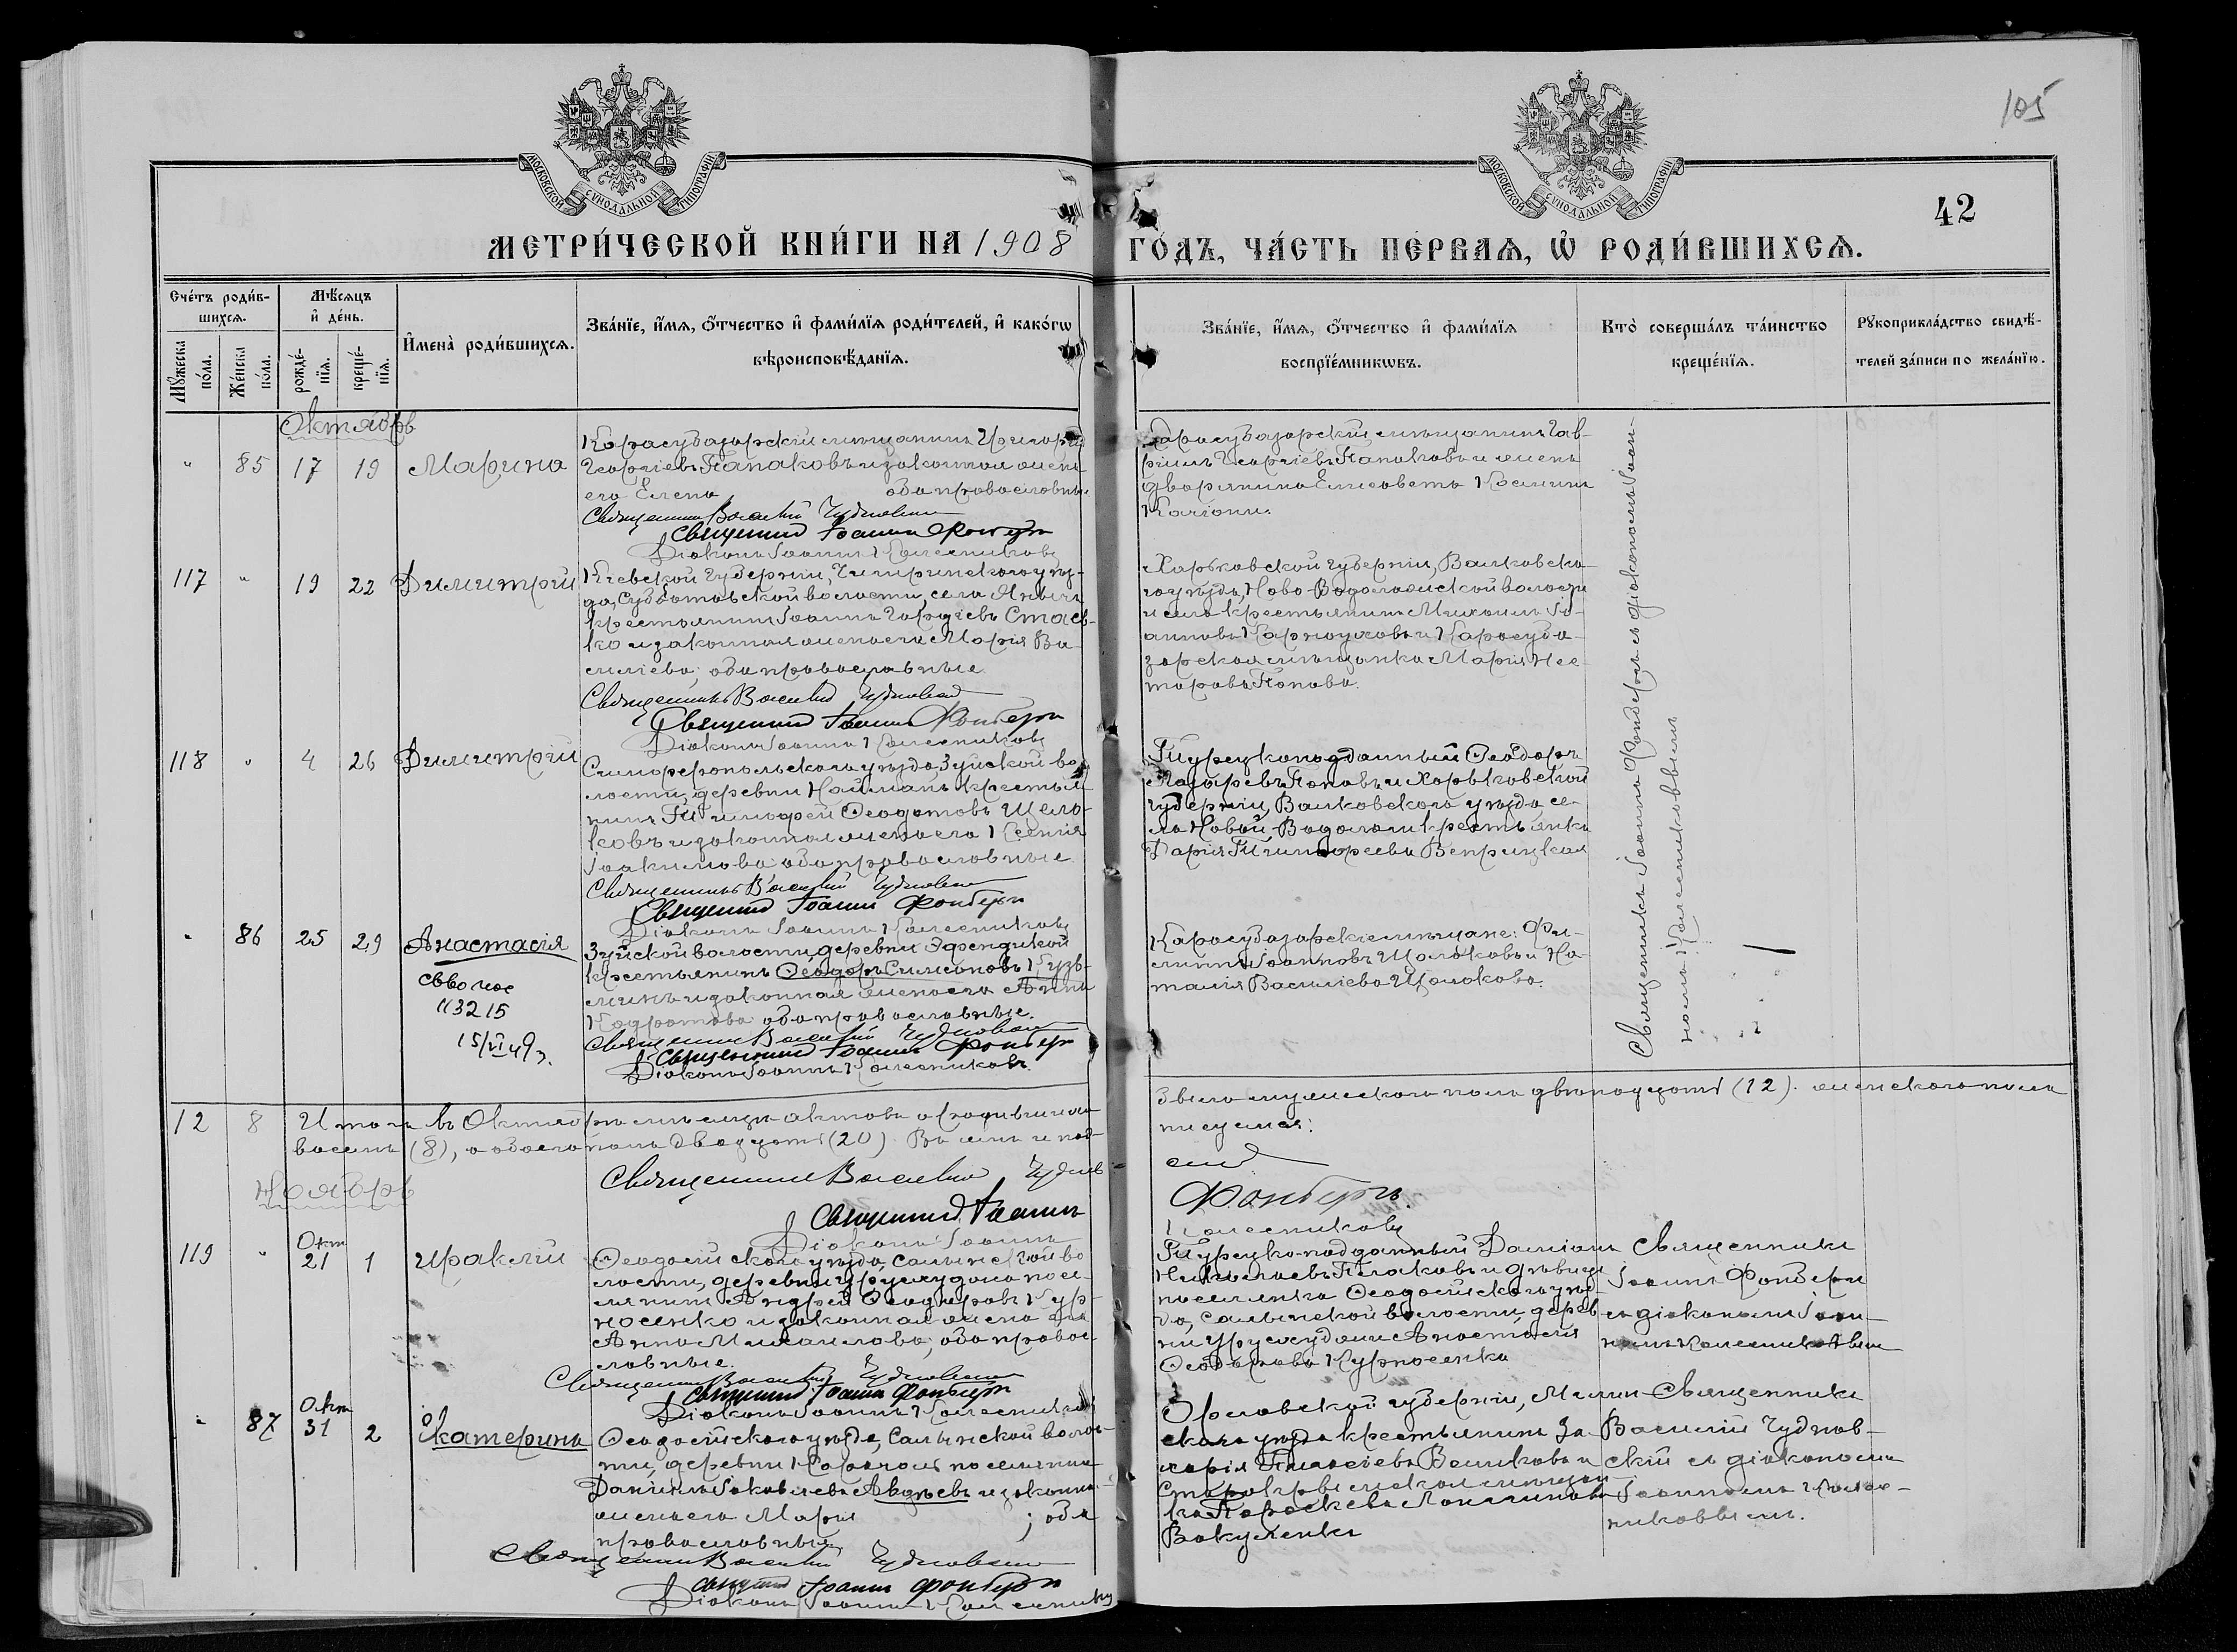 105
МОСКОВСКОЙ СѴНОДАЛЬНОЙ ТИПОГРАФІИ
МОСКОВСКОЙ СѴНОДАЛЬНОЙ ТИПОГРАФІИ
42
МЕТРИ́ЧЕСКОЙ КНИ́ГИ НА 1908 ГО́ДЪ, ЧА́СТЬ ПЕ́РВАѦ, Ѡ҆ РОДИ́ВШИХСѦ.
Сче́тъ роди́в-
шихсѧ.
Мѣ́сѧцъ
и҆ де́нь.
Мꙋ́жеска
по́ла.
Же́нска
по́ла.
рожде́-
нїѧ.
креще́-
нїѧ.
И҆мена̀ роди́вшихсѧ.
Зва́нїе, и҆́мѧ, ѻ҆́тчество и҆ фами́лїѧ роди́телей, и҆ како́гѡ
вѣроисповѣ́данїѧ.
Зва́нїе, и҆́мѧ, ѻ҆́тчество и҆ фами́лїѧ
воспрїе́мникѡвъ.
Кто̀ соверша́лъ та́инство
креще́нїѧ.
Рꙋкоприкла́дство свидѣ́-
телей за́писи по жела́нїю.
Октябрь
" 85 17 19 Марина
Карасубазарскій мѣщанинъ Григорій
Георгіевъ Папаковъ и законная жена
его Елена оба православные.
Священникъ Василій Чудновскій
Священникъ Іоаннъ Фонберъ
Діаконъ Іоаннъ Колесниковъ
Карасубазарскій мѣщанинъ Гав-
ріилъ Георгіевъ Папаковъ и жена
дворянина Елисавета
117 " 19 22 Димитрій
Кіевской губерніи, Чигиринскаго уѣз-
да, Субботовской волости, села
крестьянинъ Іоаннъ Стась-
ко и законная жена его Марія Ва-
силіева, оба православные.
Священникъ Василій Чудновскій
Священникъ Іоаннъ Фонберъ
Діаконъ Іоаннъ Колесниковъ
Харьковской губерніи, Валковска-
го уѣзда, Ново-Водолажской волости
и села крестьянинъ Михаилъ Іо-
анновъ Карнауховъ и Карасуба-
зарская мѣщанка Марія Нес-
торова Попова.
118 " 4 26 Димитрій
Симферопольскаго уѣзда, Зуйской во-
лости, деревни Найманъ крестья-
нинъ Тимофей Ѳеодотовъ Щело-
ковъ и законная жена его Ксенія
Іоакимова оба православные
Священникъ Василій Чудновскій
Священникъ Іоаннъ Фонберъ
Діаконъ Іоаннъ Колесниковъ
Турецкоподданный Ѳеодоръ
Лазаревъ Поповъ и Харьковской
губерніи, Валковскаго уѣзда се-
ла Новой Водолаги крестьянка
Дарія Тимофеева Веприцкая
" 86 25 29 Анастасія
113215
15/VI 49 г.
Зуйской волости, деревни
крестьянинъ Ѳеодоръ Симеоновъ Кузь-
минъ и законная жена его Анна
Кодратова оба православные.
Священникъ Василій Чудновскій
Священникъ Іоаннъ Фонберъ
Діаконъ Іоаннъ Колесниковъ
Карасубазарскіе мѣщане: Фи-
липпъ Іоанновъ Щолоковъ и На-
талія Василіева Щолокова.
Священникъ Іоаннъ Фонберъ съ діакономъ Іоан-
номъ Колесниковымъ
12 8 Итого въ Октябрѣ мѣсяцѣ актовъ о родившихся
было мужескаго пола двѣнадцать (12). женскаго пола
восемь (8), а обоего пола двадцать (20). Въ чемъ и под-
писуемся:
Священникъ Василій Чудновскій
Священникъ Іоаннъ Фонберъ
Діаконъ Іоаннъ Колесниковъ
Ноябрь
119 " Окт 21 1 Ираклій
Ѳеодосійскаго уѣзда, Салынской во-
лости, деревни посе-
лянинъ Андрей Ѳеодоровъ Кур-
носенко и законная жена его
Анна Михаилова, оба правос-
лавные.
Священникъ Василій Чудновскій
Священникъ Іоаннъ Фонберъ
Діаконъ Іоаннъ Колесниковъ
Турецко-подданный Даміанъ
Николаевъ и дѣвица
поселянка Ѳеодосійскаго уѣз-
да, Салынской волости, дерев-
ни Анастасія
Ѳеодорова Курносенко
Священникъ
Іоаннъ Фонберъ
съ діакономъ Іоан-
номъ Колесниковымъ
" 87 Окт 31 2 Екатерина
Ѳеодосійскаго уѣзда, Салынской волос-
ти, деревни поселянинъ
Даніилъ Іаковлевъ Авдѣевъ и законная
жена его Марія ; оба
православные
Священникъ Василій Чудновскій
Священникъ Іоаннъ Фонберъ
Діаконъ Іоаннъ Колесниковъ
Орловской губерніи,
скаго уѣзда крестьянинъ За-
харія Волковъ и
мѣщан-
ка Параскева
Вакуленко
Священникъ
Василій Чуднов-
скій съ діакономъ
Іоанномъ Колес-
никовымъ.